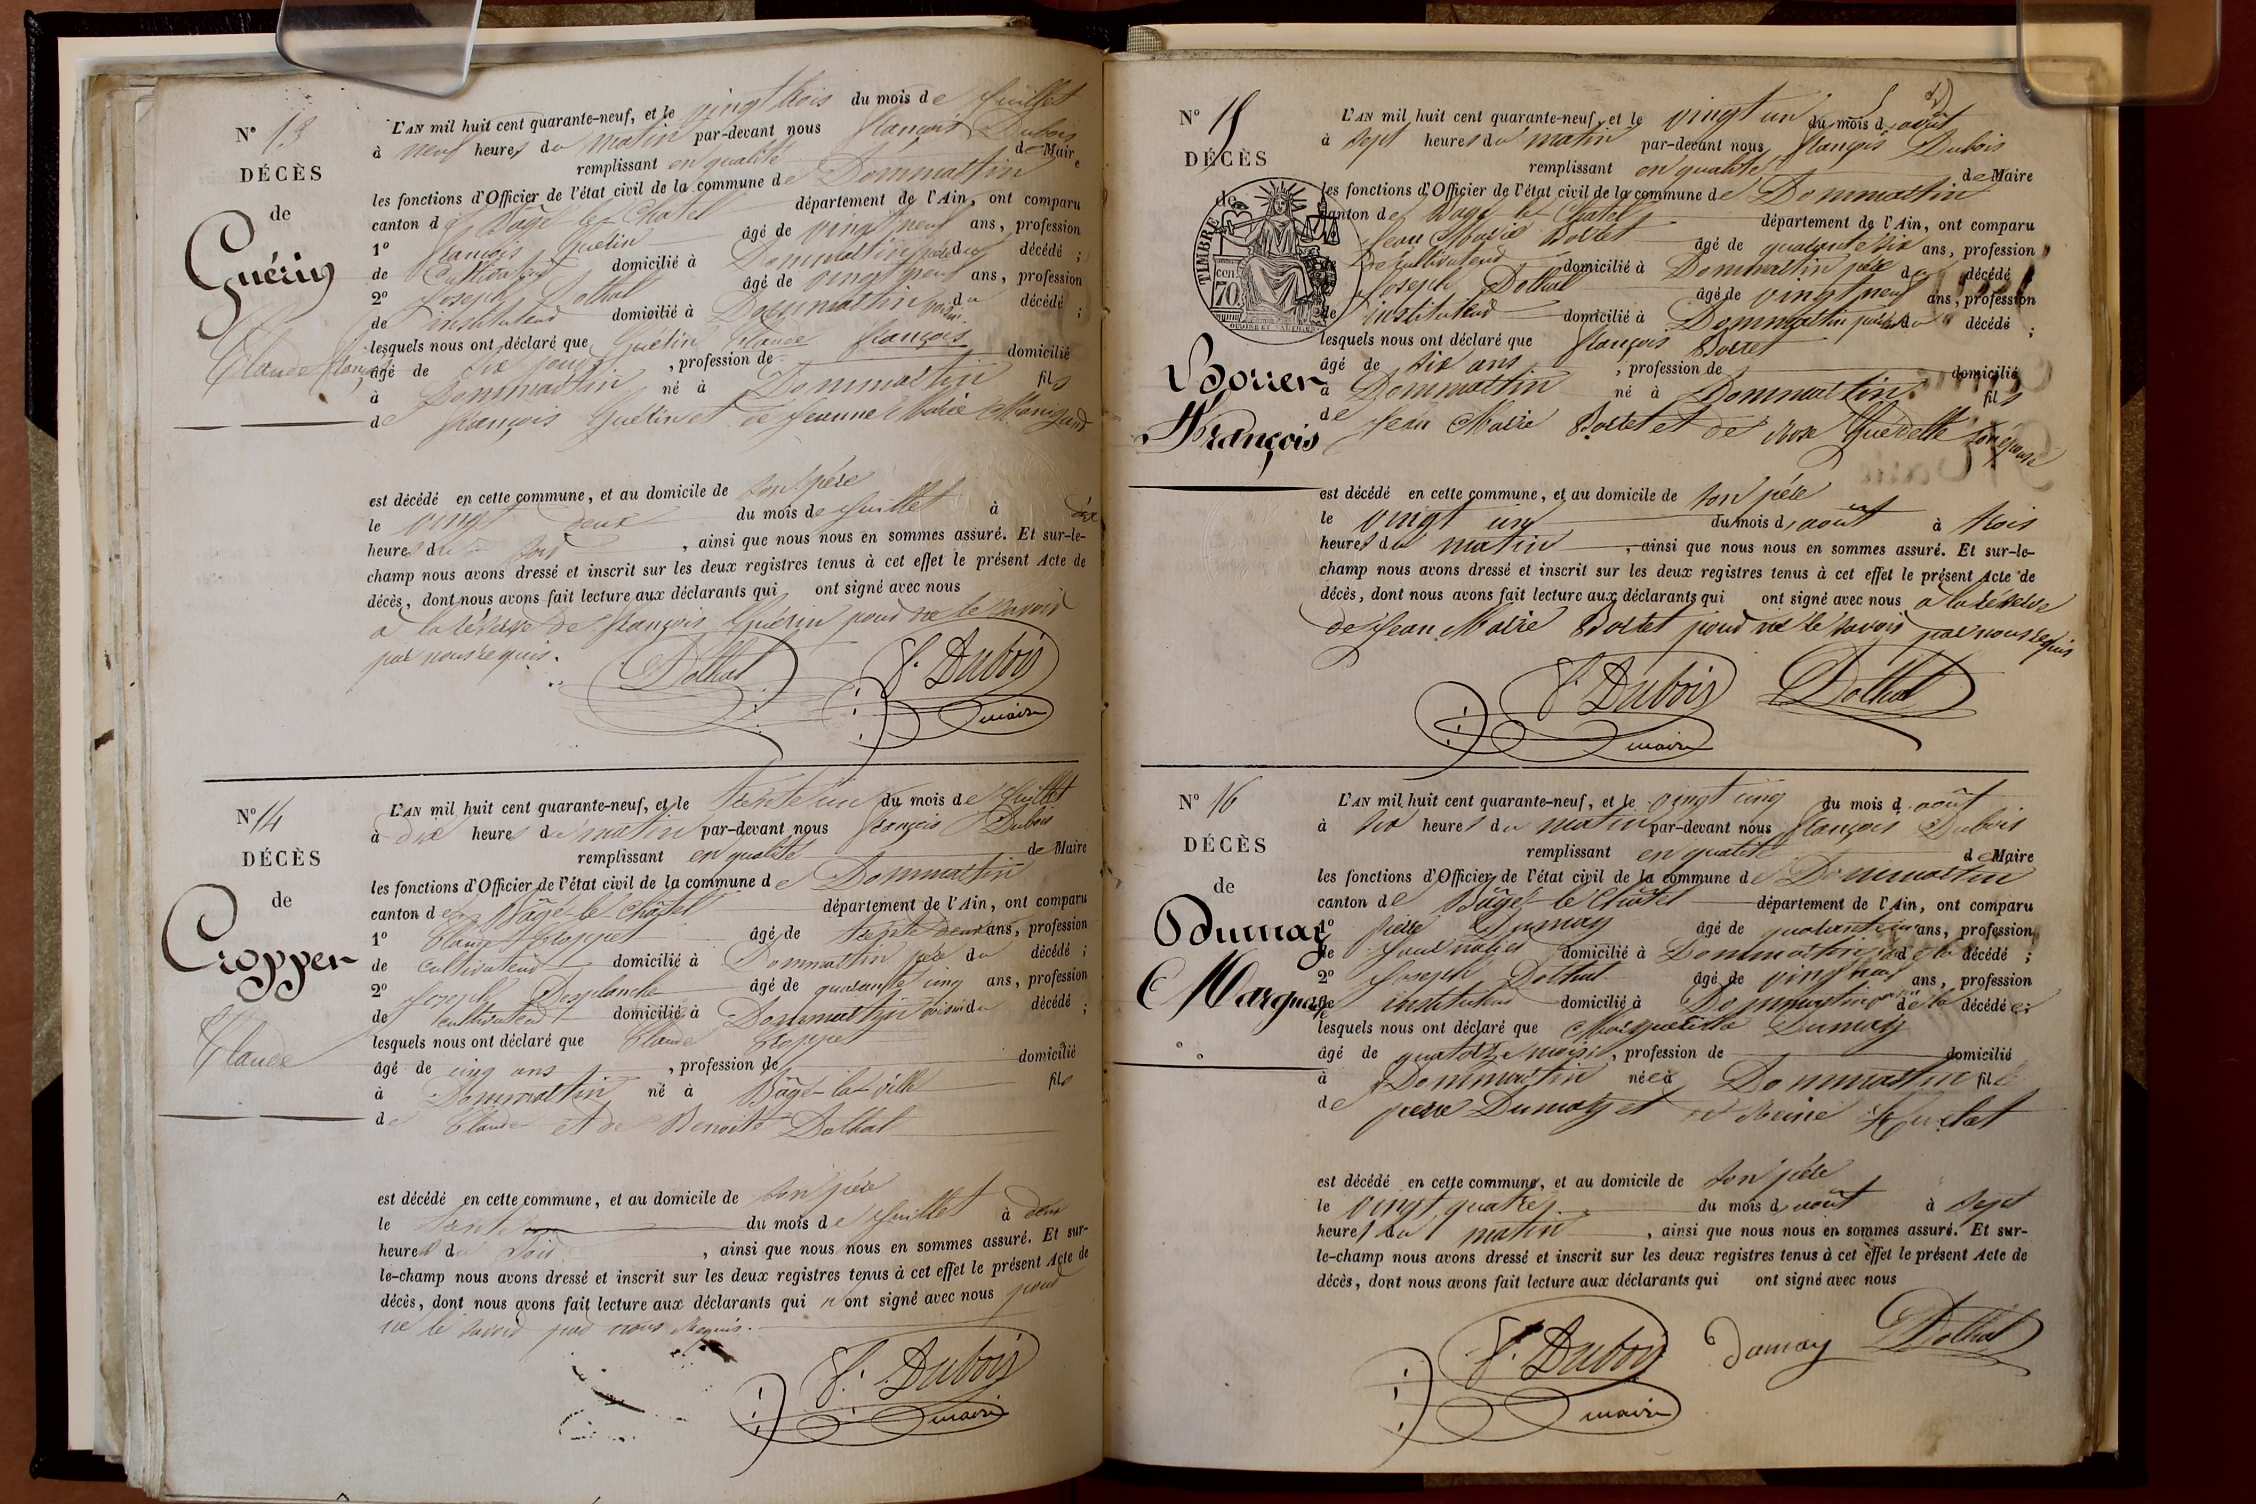 N° 13
DÉCÈS
de
Guérin
Claude François
L'AN mil huit cent quarante-neuf, et le vingt trois du mois de Juillet
à neuf heures du matin par-devant nous François Dubois
remplissant en qualité de Maire
les fonctions d'Officier de l'état civil de la commune de Dommartin
canton de Bagé-le-Chatel département de l'Ain, ont comparu
1° François Guérin âgé de vingt neuf ans, profession
de cultivateur domicilié à Dommartin père du décédé ;
2° Joseph Dothal âgé de vingt neuf ans, profession
de instituteur domicilié à Dommartin voisin du décédé ;
lesquels nous ont déclaré que Guérin Claude François
âgé de six jours , profession de domicilié
à Dommartin né à Dommartin fils
de François Guérin et de Jeanne Marie
est décédé en cette commune, et au domicile de son père
le vingt deux du mois de Juillet à dix
heures du soir , ainsi que nous nous en sommes assuré. Et sur-le-
champ nous avons dressé et inscrit sur les deux registres tenus à cet effet le présent Acte de
décès, dont nous avons fait lecture aux déclarants qui ont signé avec nous
à la réserve de François Guérin pour ne le savoir
par nous requis.
Dothal F. Dubois
maire
N° 14
DÉCÈS
de
Croppet
Claude
L'AN mil huit cent quarante-neuf, et le trente un du mois de Juillet
à dix heures du matin par-devant nous François Dubois
remplissant en qualité de Maire
les fonctions d'Officier de l'état civil de la commune de Dommartin
canton de Bâgé-le-Châtel département de l'Ain, ont comparu
1° Claude Croppet âgé de trente deux ans, profession
de cultivateur domicilié à Dommartin père du décédé ;
2° Joseph Desplanche âgé de quarante cinq ans, profession
de cultivateur domicilié à Dommartin voisin du décédé ;
lesquels nous ont déclaré que Claude Croppet
âgé de cinq ans , profession de domicilié
à Dommartin né à Bâgé-la-ville fils
de Claude et de Benoite Dothal
est décédé en cette commune, et au domicile de son père
le trente du mois de Juillet à deux
heures du soir , ainsi que nous nous en sommes assuré. Et sur-
le-champ nous avons dressé et inscrit sur les deux registres tenus à cet effet le présent Acte de
décès, dont nous avons fait lecture aux déclarants qui n'ont signé avec nous pour
ne le savoir par nous Requis.
F. Dubois
maire
N° 15
DÉCÈS
de
TIMBRE
70
Borret
François
L'AN mil huit cent quarante-neuf, et le vingt un du mois d'août
à sept heures du matin par-devant nous François Dubois
remplissant en qualité de Maire
les fonctions d'Officier de l'état civil de la commune de Dommartin
canton de Bagé-le-Chatel département de l'Ain, ont comparu
Jean Marie Borret âgé de quarante six ans, profession
de cultivateur domicilié à Dommartin père du décédé
Joseph Dothal âgé de vingt neuf ans, profession
de instituteur domicilié à Dommartin du décédé ;
lesquels nous ont déclaré que François Borret
âgé de six ans , profession de domicilié
à Dommartin né à Dommartin fils
de Jean Marie Borret et de Rose son épouse
est décédé en cette commune, et au domicile de son père
le vingt un du mois d'août à trois
heures du matin , ainsi que nous nous en sommes assuré. Et sur-le-
champ nous avons dressé et inscrit sur les deux registres tenus à cet effet le présent Acte de
décès, dont nous avons fait lecture aux déclarants qui ont signé avec nous à la réserve
de Jean Marie Borret pour ne le savoir par nous requis
F. Dubois Dothal
maire
N° 16
DÉCÈS
de
Dumay
L'AN mil huit cent quarante-neuf, et le vingt cinq du mois d'août
à six heures du matin par-devant nous François Dubois
remplissant en qualité de Maire
les fonctions d'Officier de l'état civil de la commune de Dommartin
canton de Bâgé-le-Châtel département de l'Ain, ont comparu
1° pierre Dumay âgé de ans, profession
de domicilié à Dommartin de la décédé ;
2° Joseph Dothal âgé de vingt neuf ans, profession
de instituteur domicilié à Dommartin de la décédée ;
lesquels nous ont déclaré que Marguerite Dumay
âgé de quatorze mois , profession de domicilié
à Dommartin née à Dommartin fille
de pierre Dumay et de
est décédé en cette commune, et au domicile de son père
le vingt quatre du mois d'août à sept
heures du matin , ainsi que nous nous en sommes assuré. Et sur-
le-champ nous avons dressé et inscrit sur les deux registres tenus à cet effet le présent Acte de
décès, dont nous avons fait lecture aux déclarants qui ont signé avec nous
F. Dubois Dumay Dothal
maire